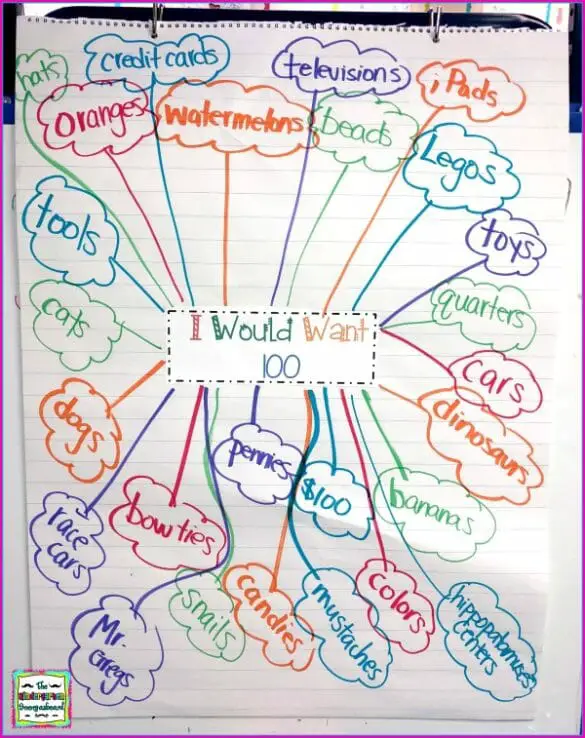 hats
credit cards
televisions
iPads
oranges
watermelons
beads
Legos
tools
toys
cats
quarters
I Would Want
100
cars
dogs
dinosaurs
pennies
$100
bananas
race
cars
bowties
snails
candies
mustaches
colors
hippopotamuses
centers
Mr.
Gregs
The
Kindergarten
Smorgasboard